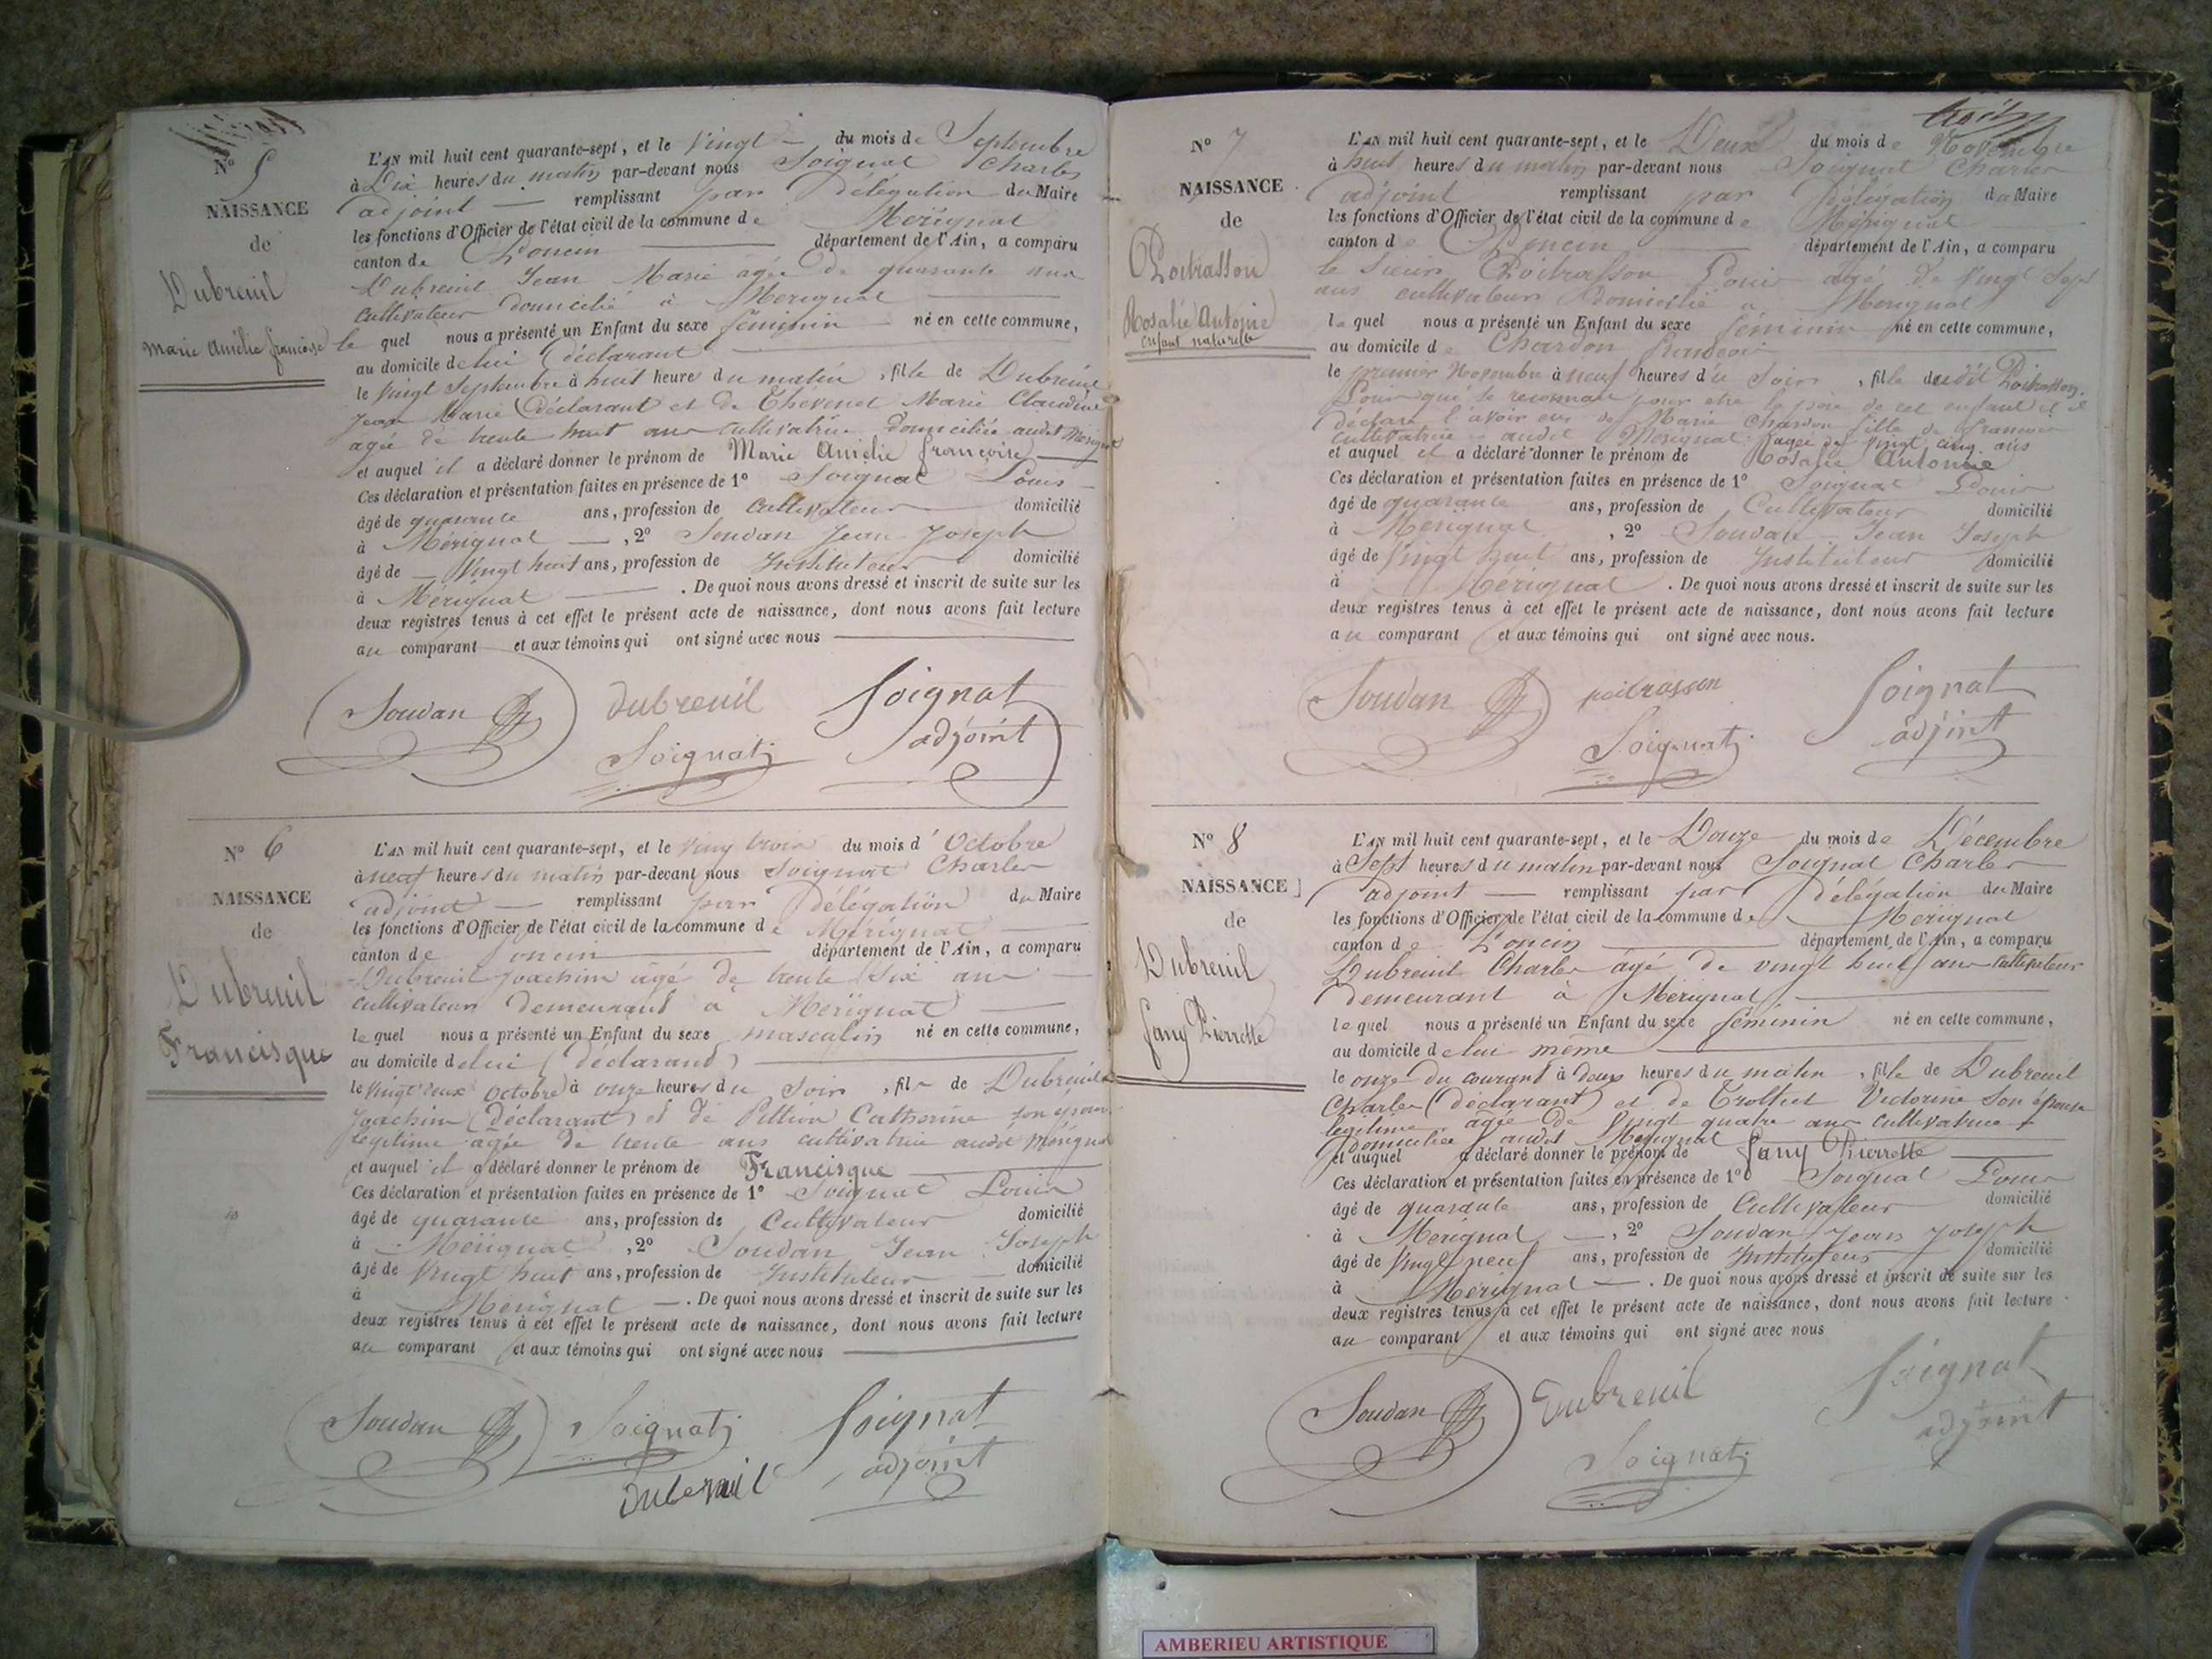 N° 5
NAISSANCE
de
Dubreuil
Marie Amélie françoise
L'AN mil huit cent quarante-sept, et le Vingt du mois de Septembre
à Dix heures du matin par-devant nous Soignat Charles
adjoint remplissant par délégation du Maire
les fonctions d'Officier de l'état civil de la commune de Mérignat
canton de Poncin département de l'Ain, a comparu
Dubreuil Jean Marie agée de quarante ans
Cultivateur domicilié à Merignat
le quel nous a présenté un Enfant du sexe féminin né en cette commune,
au domicile de lui (déclarant
le Vingt Septembre à huit heures du matin, fille de Dubreuil
Jean Marie (déclarant et de Thevenet Marie Claudine
agée de trente huit ans cultivatrice domiciliée audit Mérignat
et auquel il a déclaré donner le prénom de Marie Amélie françoise
Ces déclaration et présentation faites en présence de 1° Soignat Louis
âgé de quarante ans, profession de Cultivateur domicilié
à Mérignat, 2° Soudan Jean Joseph
âgé de Vingt huit ans, profession de Instituteur domicilié
à Mérignat. De quoi nous avons dressé et inscrit de suite sur les
deux registres tenus à cet effet le présent acte de naissance, dont nous avons fait lecture
au comparant et aux témoins qui ont signé avec nous
Soudan dubreuil Soignat
Soignat adjoint
N° 6
NAISSANCE
de
Dubreuil
Francisque
L'AN mil huit cent quarante-sept, et le Vingt trois du mois d'Octobre
à neuf heures du matin par-devant nous Soignat Charles
adjoint remplissant par délégation du Maire
les fonctions d'Officier de l'état civil de la commune de Mérignat
canton de Poncin département de l'Ain, a comparu
Dubreuil Joachim âgé de trente six ans
cultivateur demeurant à Mérignat
le quel nous a présenté un Enfant du sexe masculin né en cette commune,
au domicile de lui (déclarant)
le Vingt deux Octobre à onze heures du Soir, fils de Dubreuil
Joachim (Déclarant) et de Pittion Catherine son épouse
légitime agée de trente ans cultivatrice audit Mérignat
et auquel il a déclaré donner le prénom de Francisque
Ces déclaration et présentation faites en présence de 1° Soignat Louis
âgé de quarante ans, profession de Cultivateur domicilié
à Mérignat, 2° Soudan Jean Joseph
âgé de Vingt huit ans, profession de Instituteur domicilié
à Mérignat. De quoi nous avons dressé et inscrit de suite sur les
deux registres tenus à cet effet le présent acte de naissance, dont nous avons fait lecture
au comparant et aux témoins qui ont signé avec nous
Soudan Soignat Soignat
Dubreuil adjoint
trois
N° 7
NAISSANCE
de
Poitrasson
Rosalie Antoine
enfant naturelle
L'AN mil huit cent quarante-sept, et le Deux du mois de Novembre
à huit heures du matin par-devant nous Soignat Charles
adjoint remplissant par Délégation du Maire
les fonctions d'Officier de l'état civil de la commune de Mérignat
canton de Poncin département de l'Ain, a comparu
le Sieur Poitrasson Louis agé de Vingt Sept
ans cultivateur Domicilié à Merignat
le quel nous a présenté un Enfant du sexe féminin né en cette commune,
au domicile de Chardon françois
le premier Novembre à neuf heures du Soir, fille dudit Poitrasson
Louis qui le reconnait pour etre le père de cet enfant et il
déclare l'avoir eue de Marie Chardon fille de françois
cultivatrice audit Merignat agée de vingt cinq ans
et auquel il a déclaré donner le prénom de Rosalie Antoine
Ces déclaration et présentation faites en présence de 1° Soignat Louis
âgé de quarante ans, profession de Cultivateur domicilié
à Mérignat, 2° Soudan Jean Joseph
âgé de Vingt huit ans, profession de Instituteur domicilié
à Mérignat. De quoi nous avons dressé et inscrit de suite sur les
deux registres tenus à cet effet le présent acte de naissance, dont nous avons fait lecture
au comparant et aux témoins qui ont signé avec nous.
Soudan poitrasson Soignat
Soignat adjoint
N° 8
NAISSANCE
de
Dubreuil
fany Pierrette
L'AN mil huit cent quarante-sept, et le Douze du mois de Décembre
à Sept heures du matin par-devant nous Soignat Charles
adjoint remplissant par délégation du Maire
les fonctions d'Officier de l'état civil de la commune de Mérignat
canton de Poncin département de l'Ain, a comparu
Dubreuil Charles âgé de vingt huit ans Cultivateur
demeurant à Merignat
le quel nous a présenté un Enfant du sexe féminin né en cette commune,
au domicile de lui même
le onze du courant à deux heures du matin, fille de Dubreuil
Charles (déclarant) et de Trolliet Victorine son épouse
légitime agée de Vingt quatre ans cultivatrice
domiciliée audit Merignat
et auquel a déclaré donner le prénom de fany Pierrette
Ces déclaration et présentation faites en présence de 1° Soignat Louis
âgé de quarante ans, profession de Cultivateur domicilié
à Mérignat, 2° Soudan Jean Joseph
âgé de Vingt neuf ans, profession de Instituteur domicilié
à Mérignat. De quoi nous avons dressé et inscrit de suite sur les
deux registres tenus à cet effet le présent acte de naissance, dont nous avons fait lecture
au comparant et aux témoins qui ont signé avec nous
Soudan Dubreuil Soignat
Soignat adjoint
AMBERIEU ARTISTIQUE